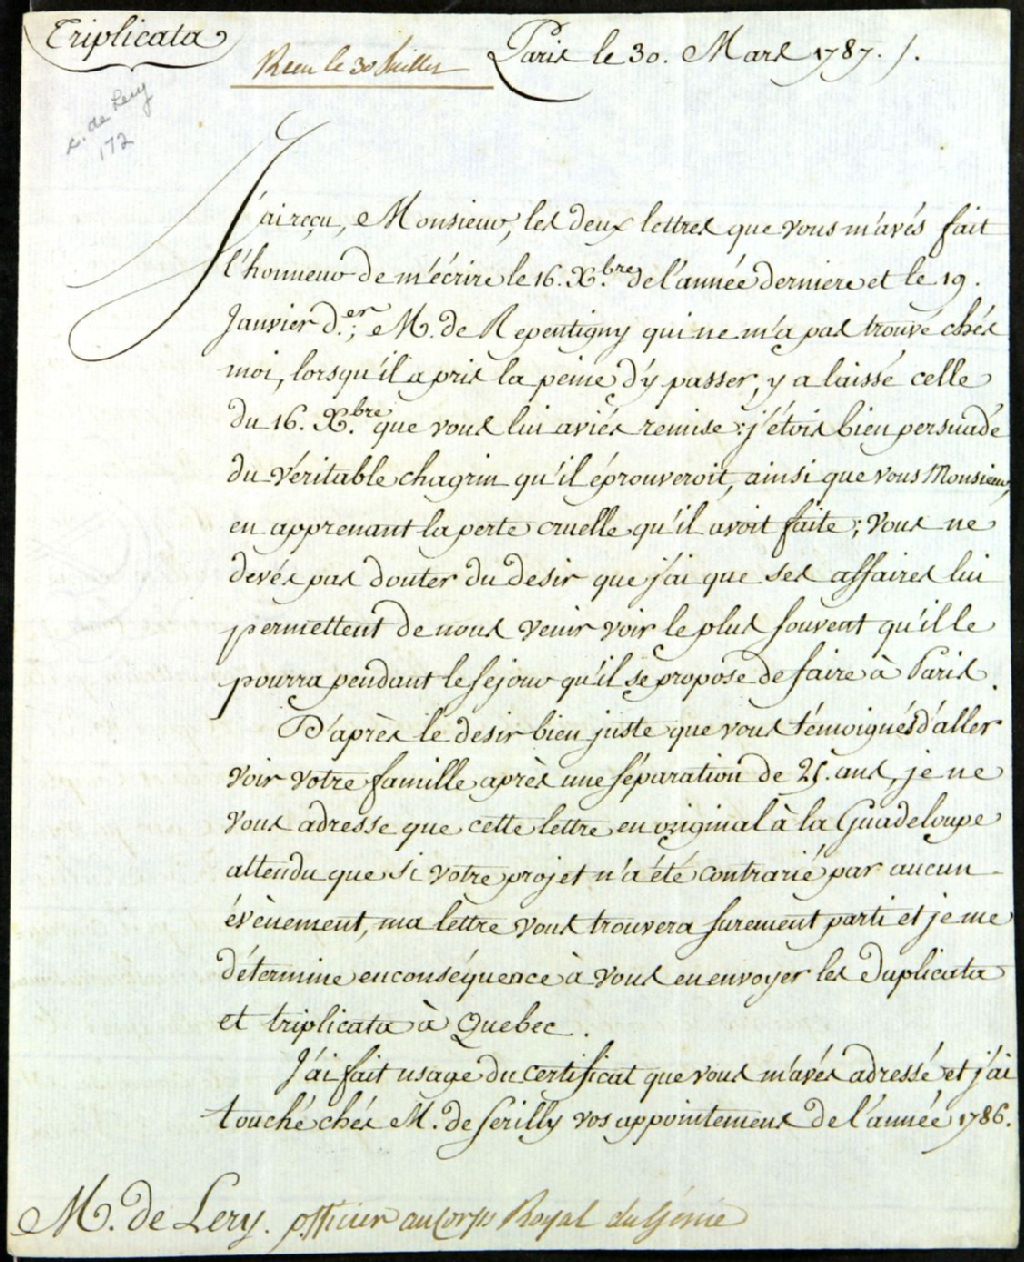 Triplicata
Recu le 30 Juillet
Paris le 30. Mars 1787. /.
de Lery
172
J'ai reçu, Monsieur, les deux lettres que vous m'avés fait
l'honneur de m'écrire le 16. Xbre. de l'année derniere et le 19.
Janvier d.er; M. de Repentigny qui ne m'a pas trouvé chés
moi, lorsqu'il a pris la peine d'y passer, y a laissé celle
du 16. Xbre. que vous lui aviés remise: j'étois bien persuadé
du véritable chagrin qu'il éprouveroit, ainsi que vous Monsieur,
en apprenant la perte cruelle qu'il avoit faite; vous ne
devés pas douter du desir que j'ai que ses affaires lui
permettent de nous venir voir le plus souvent qu'il le
pourra pendant le sejour qu'il se propose de faire à Paris.
D'après le desir bien juste que vous témoignés d'aller
voir votre famille après une séparation de 25. ans, je ne
vous adresse que cette lettre en original à la Guadeloupe
attendu que si votre projet n'a été contrarié par aucun
évènement, ma lettre vous trouvera surement parti et je me
détermine en conséquence à vous en envoyer les duplicata
et triplicata à Quebec.
J'ai fait usage du certificat que vous m'avés adressé et j'ai
touché chés M. de Serilly vos appointemens de l'année 1786.
M. de Lery. officier au Corps Royal du Génie